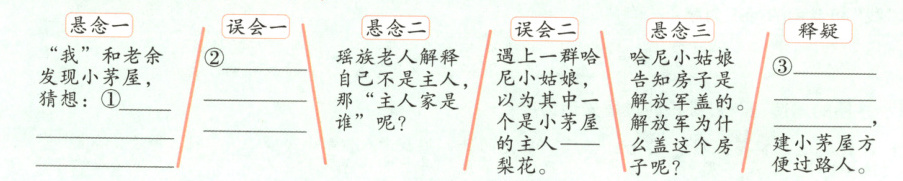 悬念一
“我”和老余
发现小茅屋,
猜想:①
误会一
②
悬念二
瑶族老人解释
自己不是主人,
那“主人家是
谁”呢?
误会二
遇上一群哈
尼小姑娘,
以为其中一
个是小茅屋
的主人——
梨花。
悬念三
哈尼小姑娘
告知房子是
解放军盖的。
解放军为什
么盖这个房
子呢?
释疑
③
,
建小茅屋方
便过路人。